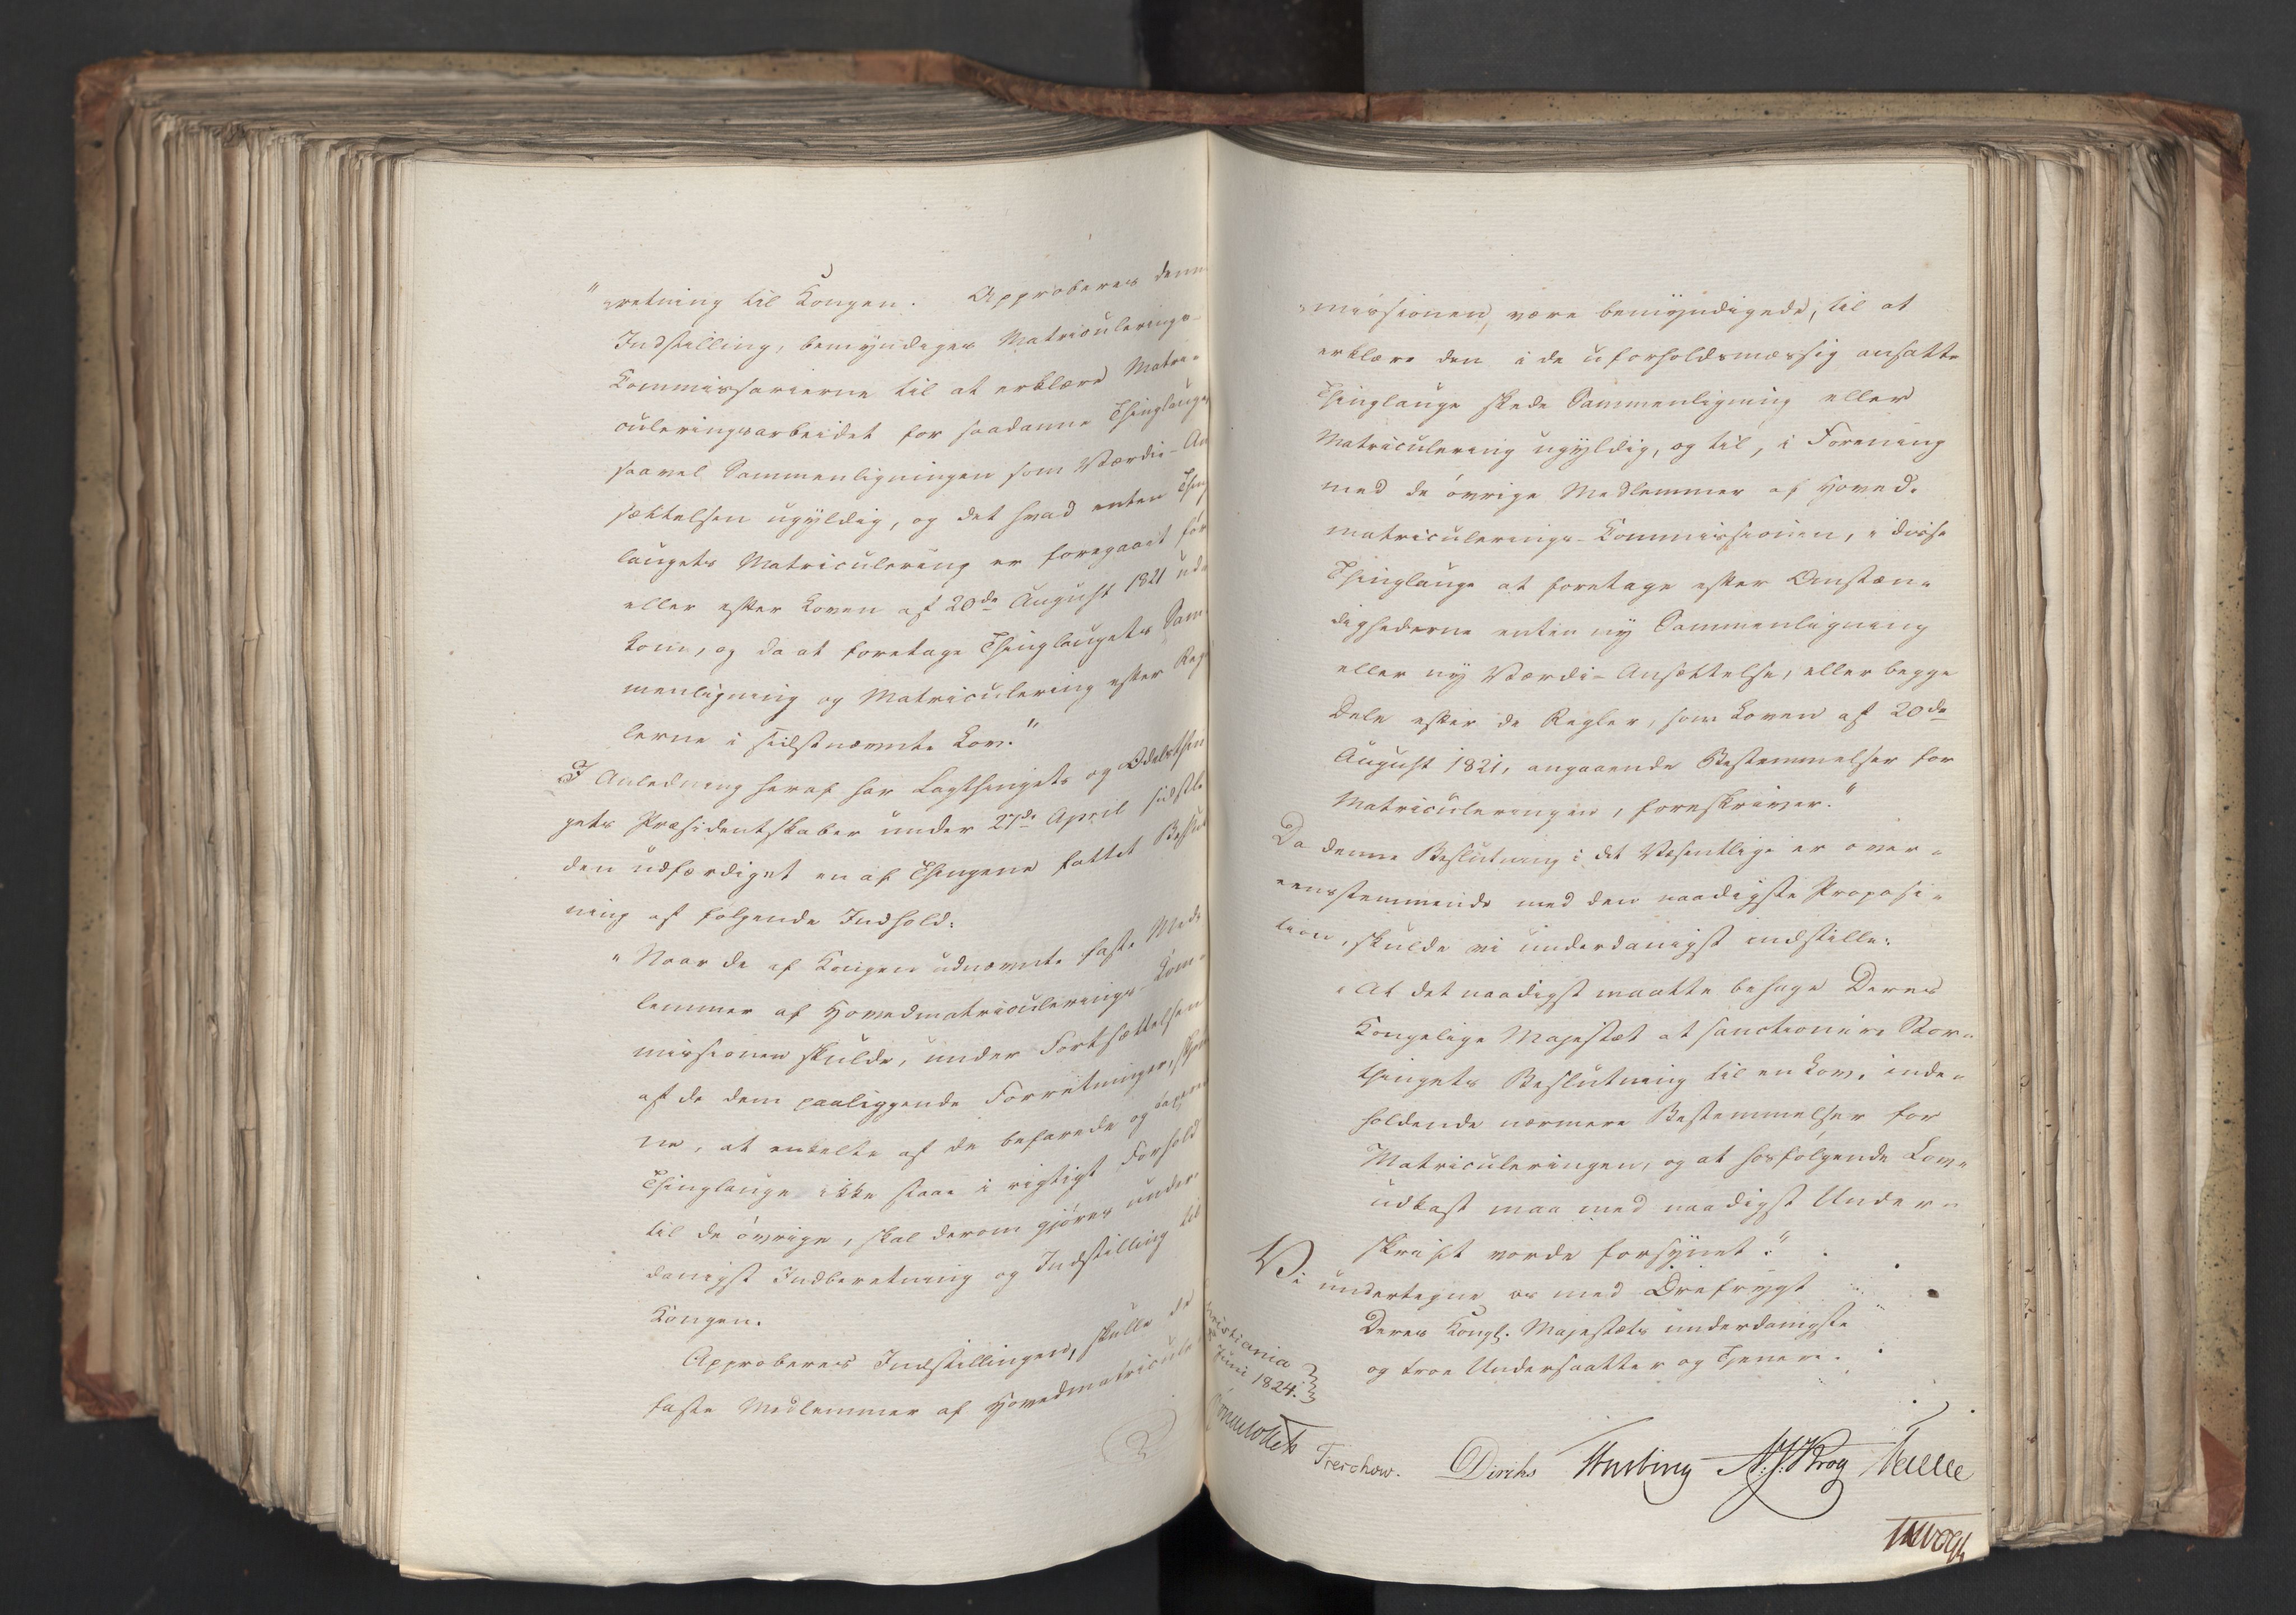 "retning til Kongen. Approberes denne
Indstilling, bemyndiges Matriculerings-
Kommissairerne til at erklære Matri-
culeringsarbeidet for saadanne Thinglauge,
saavel Sammenligningen som Værdie-An
sættelsen ugyldig, og det hvad enten Thing
laugets Matriculering er foregaaet før
eller efter Loven af 20de August 1821 ud-
kom, og da at foretage Thinglaugets Sam
menligning og Matriculering efter Reg
lerne i sidstnævnte Lov."
I Anledning heraf har Lagthingets og Odelsthin
gets Præsidentskaber under 27de April sidstle
den udfærdiget en af Thingene fattet Beslut
ning af følgende Indhold:
"Naar de af Kongen udnævnte faste Med-
lemmer af Hovedmatriculerings-Kom-
missionen skulde, under Fortsættelsen
af de dem paaliggende Forretninger, skjøn
ne, at enkelte af de befarede og
Thinglauge ikke staae i rigtigt Forhold
til de øvrige, skal derom gjøres under-
danigst Indberetning og Indstilling til
Kongen.
Approberes Indstillingen, skulle de
faste Medlemmer af Hovedmatricule
missionen, være bemyndigede, til at
erklære den i de uforholdsmæssig ansatte
Thinglauge skede Sammenligning eller
Matriculering ugyldig, og til, i Forening
med de øvrige Medlemmer af Hoved-
matriculerings-Kommissionen, i disse
Thinglauge at foretage efter Omstæn-
dighederne enten ny Sammenligning
eller ny Værdi-Ansættelse, eller begge
Dele efter de Regler, som Loven af 20de
August 1821, angaaende Bestemmelser for
Matriculeringen, foreskriver."
Da denne Beslutning i det Væsentlige er over-
eensstemmende med den naadigste Proposi-
tion, skulde vi underdanigst indstille:
"At det naadigst maatte behage Deres
Kongelige Majestæt at sanctionere Stor-
thingets Beslutning til en Lov, inde-
holdende nærmere Bestemmelser for
Matriculeringen, og at hosfølgende Lov-
udkast maa med naadigst Under-
skrift vorde forsynet."
Vi undertegne os med Ærefrygt
Deres Kongl. Majestæts underdanigste
og troe Undersaatter og Tjenere.
Christiania
Juni 1824.
Treschow. Diriks Motzfeldt